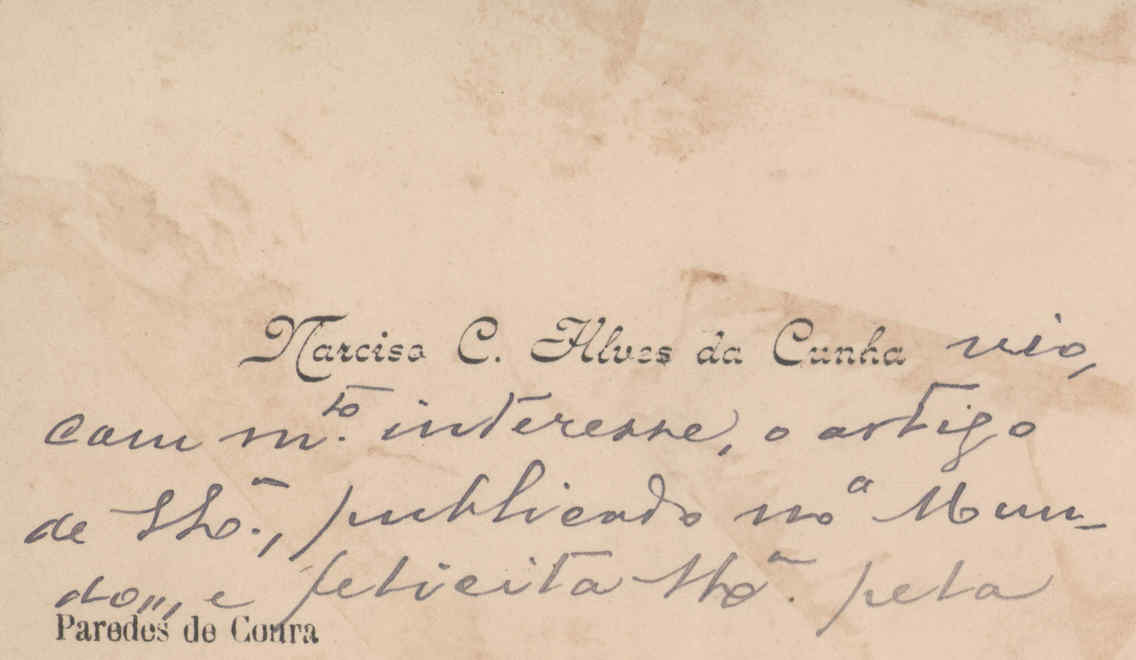 Narciso C. Alves da Cunha viu,
com m.to interesse, o artigo
de , publicado no "Mun-
do", e felicita pela
Paredes de Coura